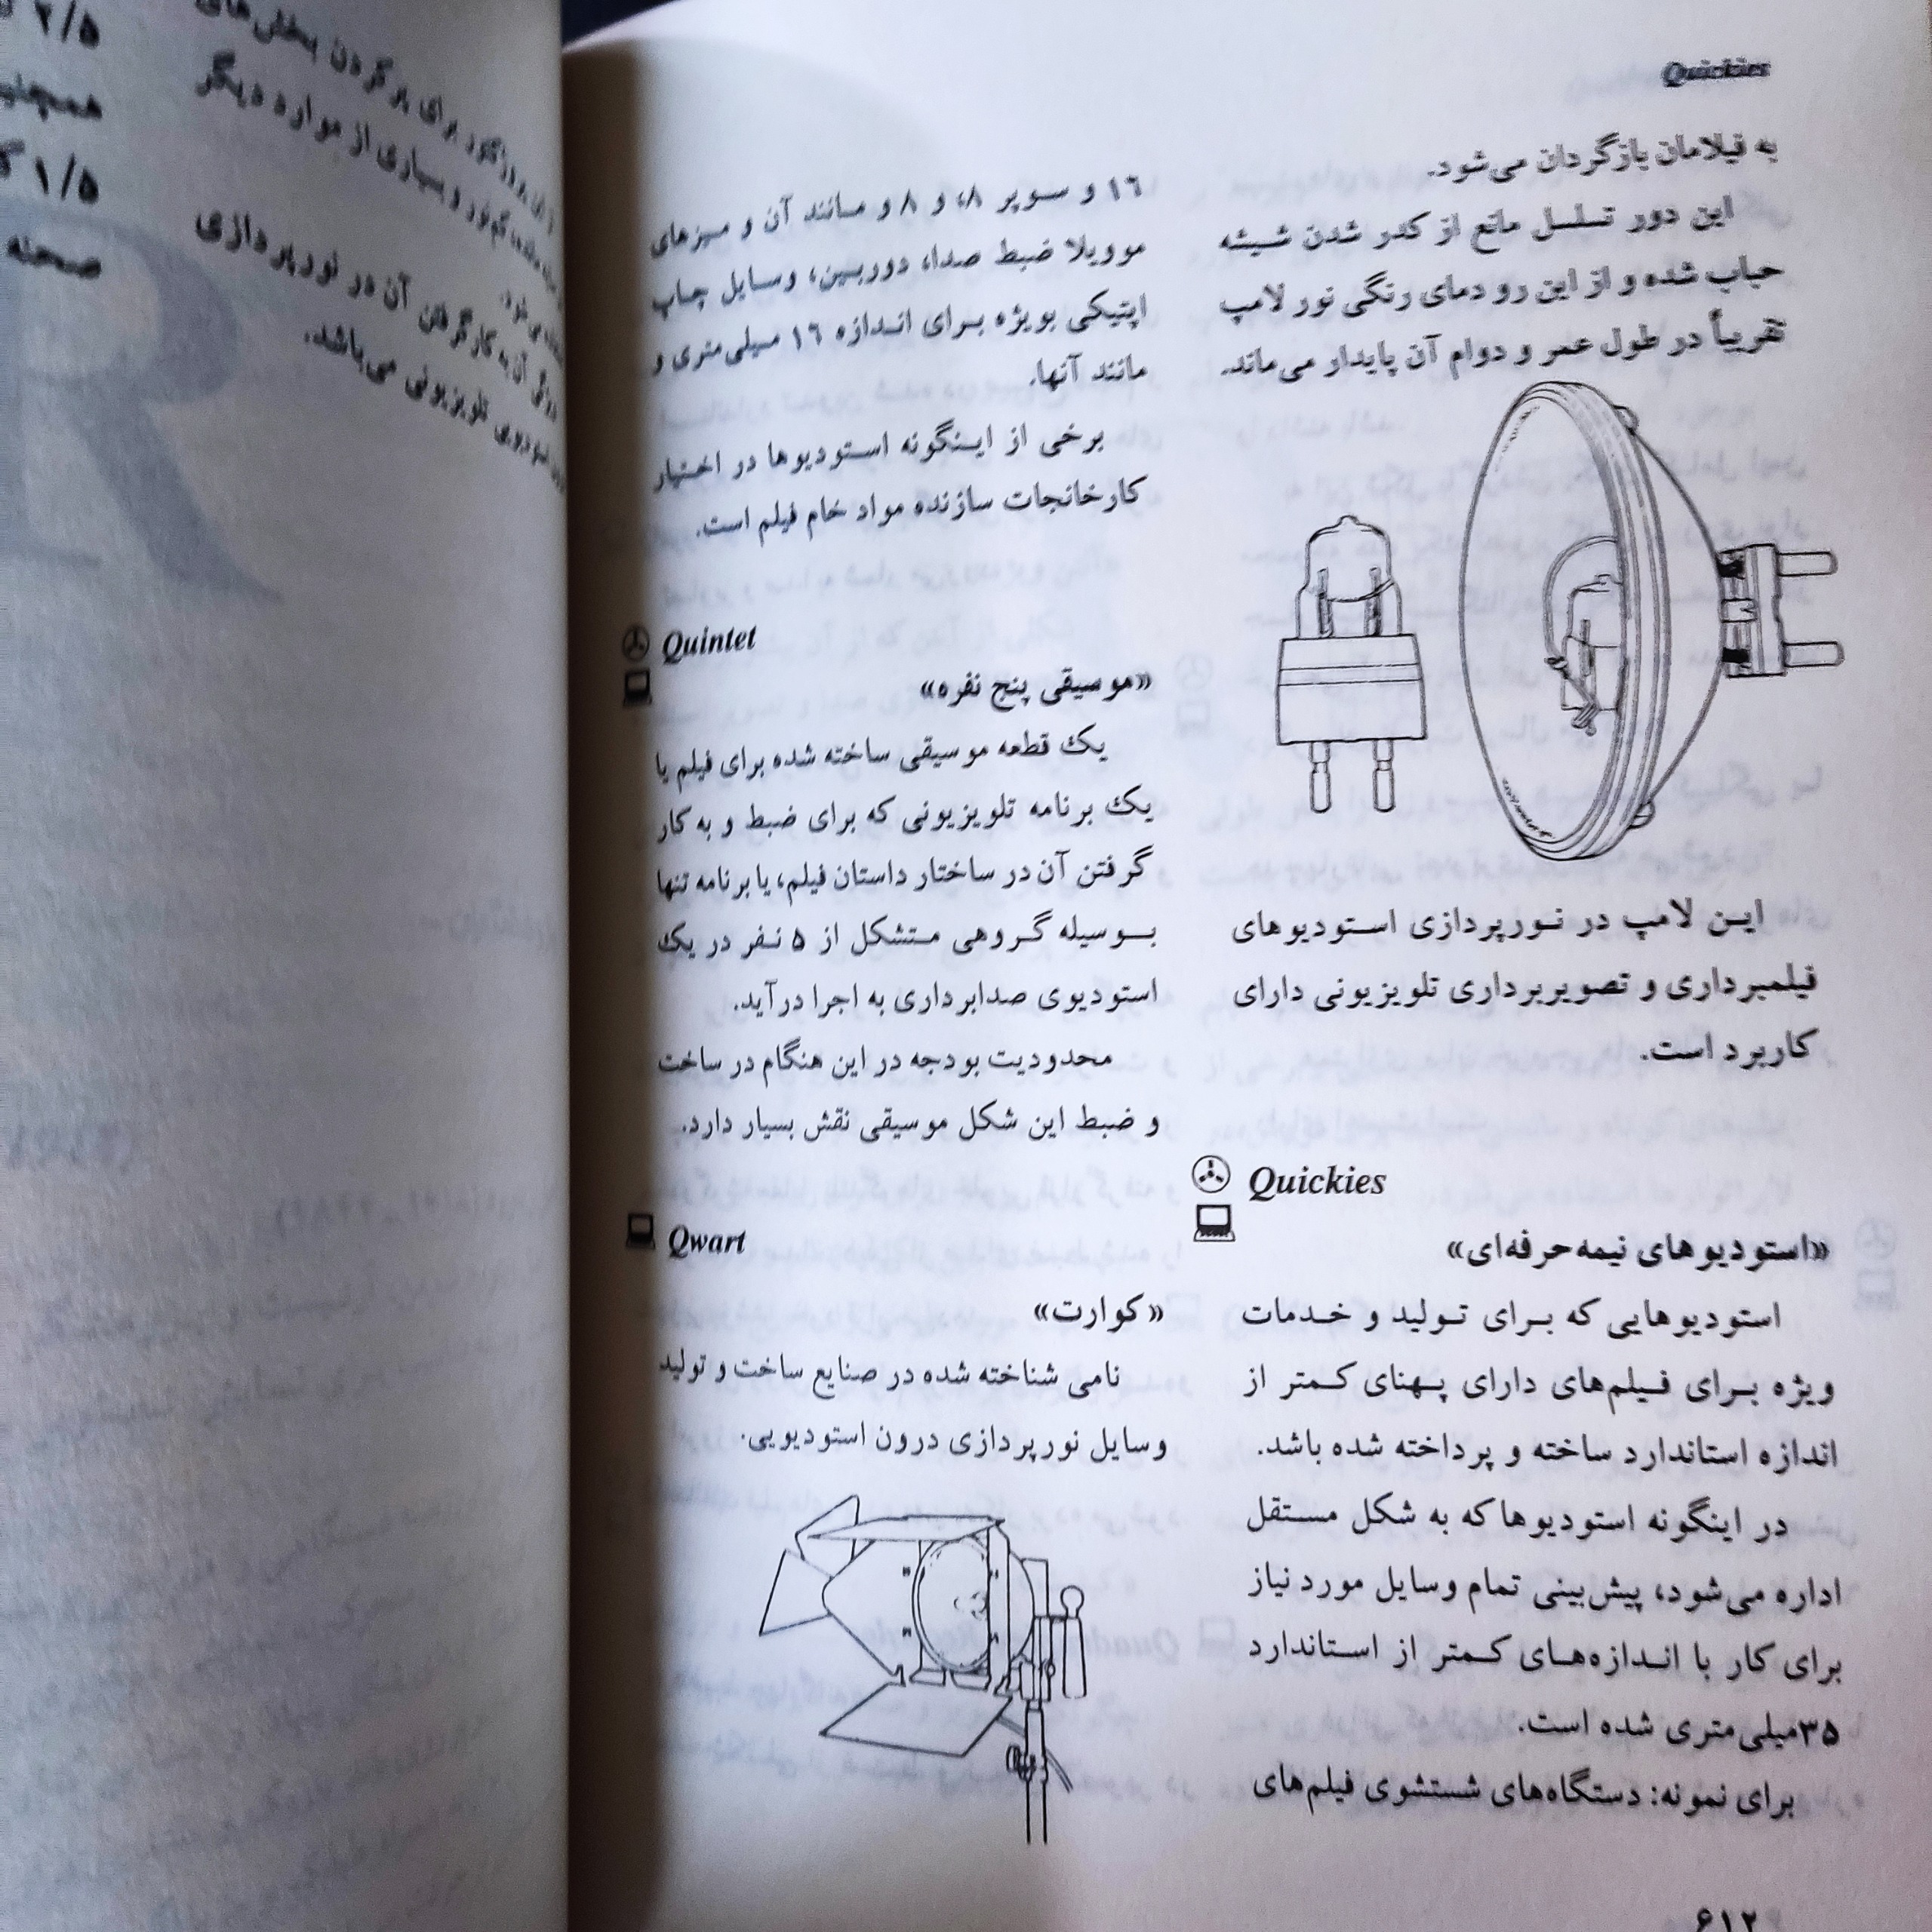 Quickies
به فیلامان بازگردان می‌شود.
این دور تسلسل مانع از کدر شدن شیشه
حباب شده و از این رو دمای رنگی نور لامپ
تقریباً در طول عمر و دوام آن پایدار می‌ماند.
این لامپ در نورپردازی استودیوهای
فیلمبرداری و تصویربرداری تلویزیونی دارای
کاربرد است.
Quickies
«استودیوهای نیمه‌حرفه‌ای»
استودیوهایی که برای تولید و خدمات
ویژه برای فیلم‌های دارای پهنای کمتر از
اندازه استاندارد ساخته و پرداخته شده باشد.
در اینگونه استودیوها که به شکل مستقل
اداره می‌شود، پیش‌بینی تمام وسایل مورد نیاز
برای کار با اندازه‌های کمتر از استاندارد
۳۵میلی‌متری شده است.
برای نمونه: دستگاه‌های شستشوی فیلم‌های
۱۶ و سوپر ۸، و ۸ و مانند آن و میزهای
موویلا ضبط صدا، دوربین، وسایل چاپ
اپتیکی بویژه برای اندازه ۱۶ میلی‌متری و
مانند آنها.
برخی از اینگونه استودیوها در اختیار
کارخانجات سازنده مواد خام فیلم است.
Quintet
«موسیقی پنج نفره»
یک قطعه موسیقی ساخته شده برای فیلم یا
یک برنامه تلویزیونی که برای ضبط و به کار
گرفتن آن در ساختار داستان فیلم، یا برنامه تنها
بوسیله گروهی متشکل از ۵ نفر در یک
استودیوی صدابرداری به اجرا درآید.
محدودیت بودجه در این هنگام در ساخت
و ضبط این شکل موسیقی نقش بسیار دارد.
Qwart
«کوارت»
نامی شناخته شده در صنایع ساخت و تولید
وسایل نورپردازی درون استودیویی.
۶۱۲
۲/۵
۱/۵
صحنه
برای پر کردن بخش‌های
و بسیاری از موارد دیگر
آن به کار گرفتن آن در نورپردازی
تلویزیونی می‌باشد.
R